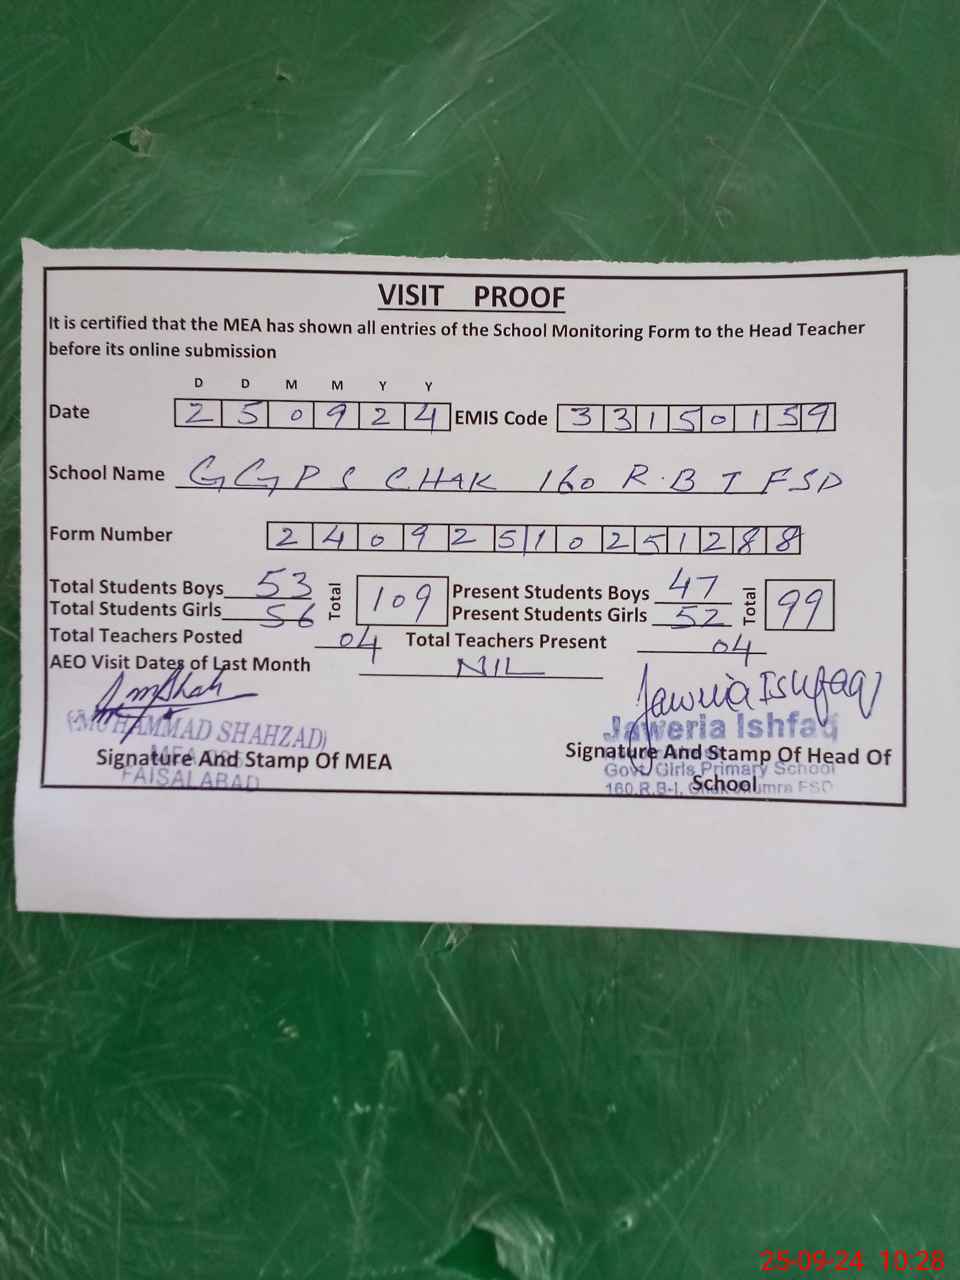 VISIT PROOF
It is certified that the MEA has shown all entries of the School Monitoring Form to the Head Teacher
before its online submission
D D M M Y Y
Date 2 5 0 9 2 4 EMIS Code 3 3 1 5 0 1 5 9
School Name GGPS CHAK 160 R.B I FSD
Form Number 2 4 0 9 2 5 1 0 2 5 1 2 8 8
Total Students Boys 53 Total 109 Present Students Boys 47 Total 99
Total Students Girls 56 Present Students Girls 52
Total Teachers Posted 04 Total Teachers Present 04
AEO Visit Dates of Last Month NIL
Jawria Ishfaq
(MUHAMMAD SHAHZAD) Jaweria Ishfaq
Signature And Stamp Of MEA Signature And Stamp Of Head Of
School
FAISALABAD Govt Girls Primary School
160.R.B-I, Chak Jhumra FSD
25-09-24 10:28